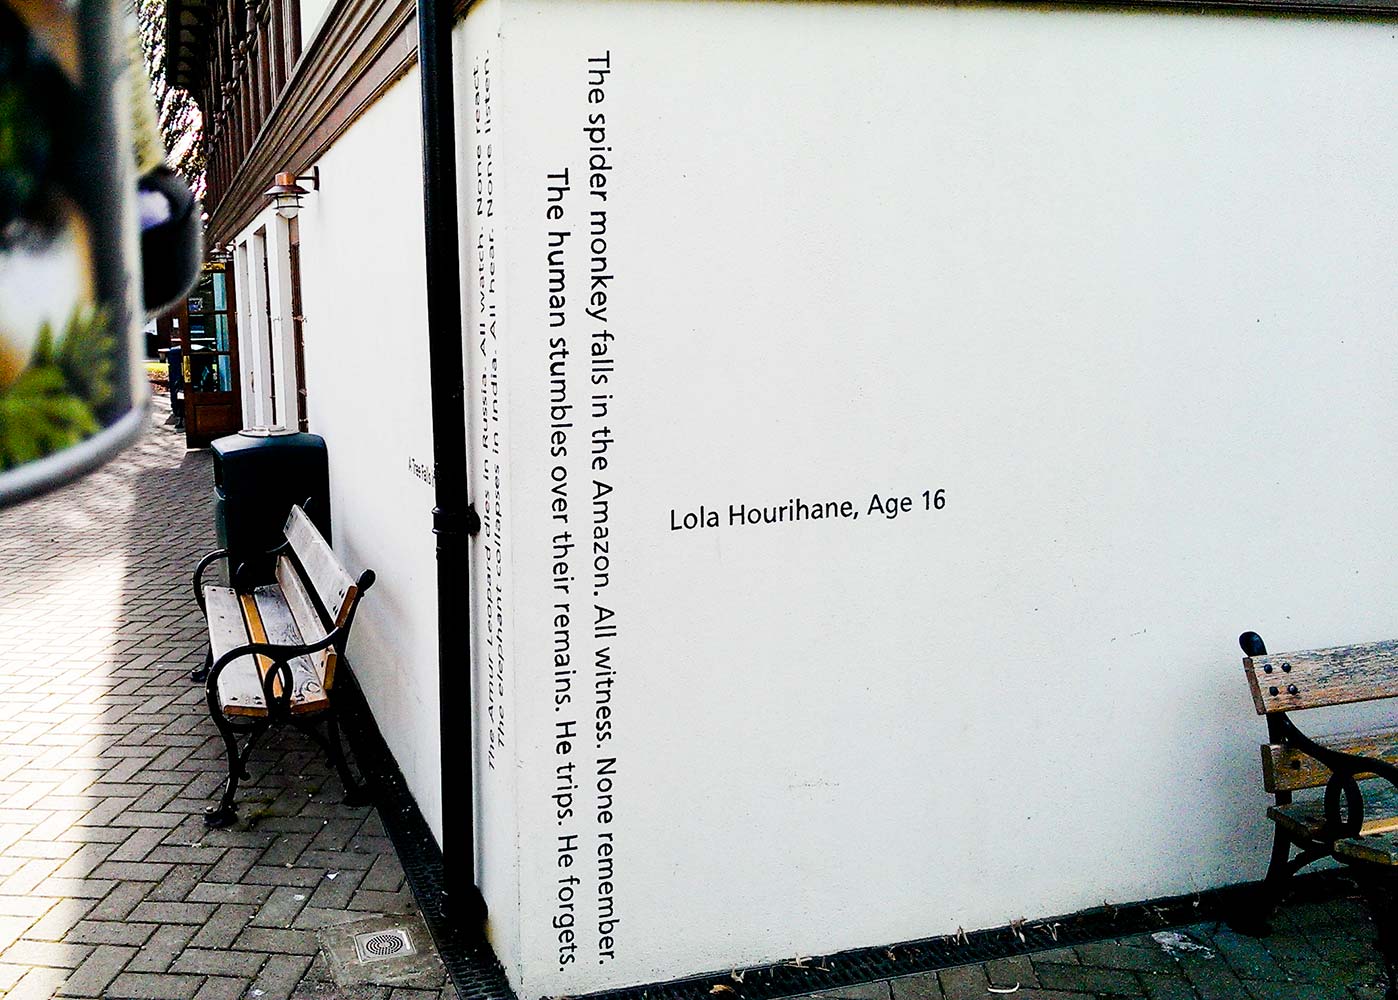 A Tree Falls
The Amur Leopard dies in Russia. All watch. None react.
The elephant collapses in India. All hear. None listen.
The spider monkey falls in the Amazon. All witness. None remember.
The human stumbles over their remains. He trips. He forgets.
Lola Hourihane, Age 16